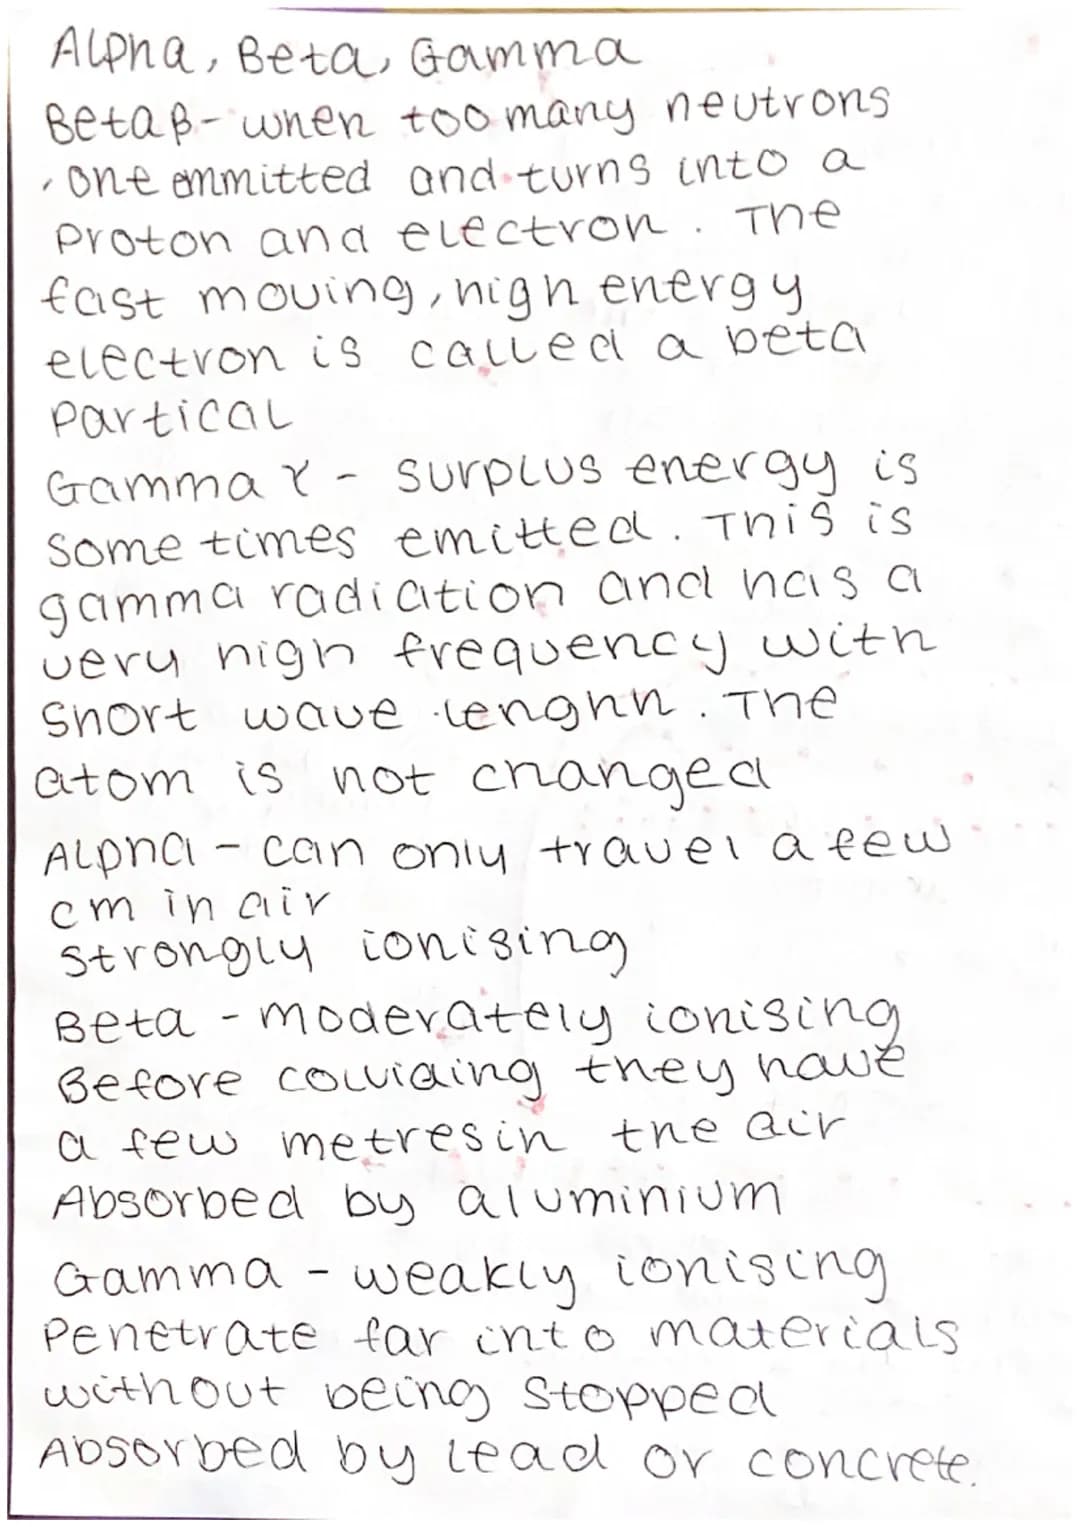 Alpha, Beta, Gamma
Beta β - when too many neutrons
, one emmitted and turns into a
Proton and electron. The
fast moving, high energy
electron is called a beta
Partical
Gamma γ - surplus energy is
some times emitted. This is
gamma radiation and has a
very high frequency with
Short wave lenghh. The
atom is not changed
Alpha - can only travel a few
cm in air
strongly ionising
Beta - moderately ionising
Before colliding they have
a few metres in the air
Absorbed by aluminium
Gamma - weakly ionising
Penetrate far into materials
without being stopped
Absorbed by lead or concrete.